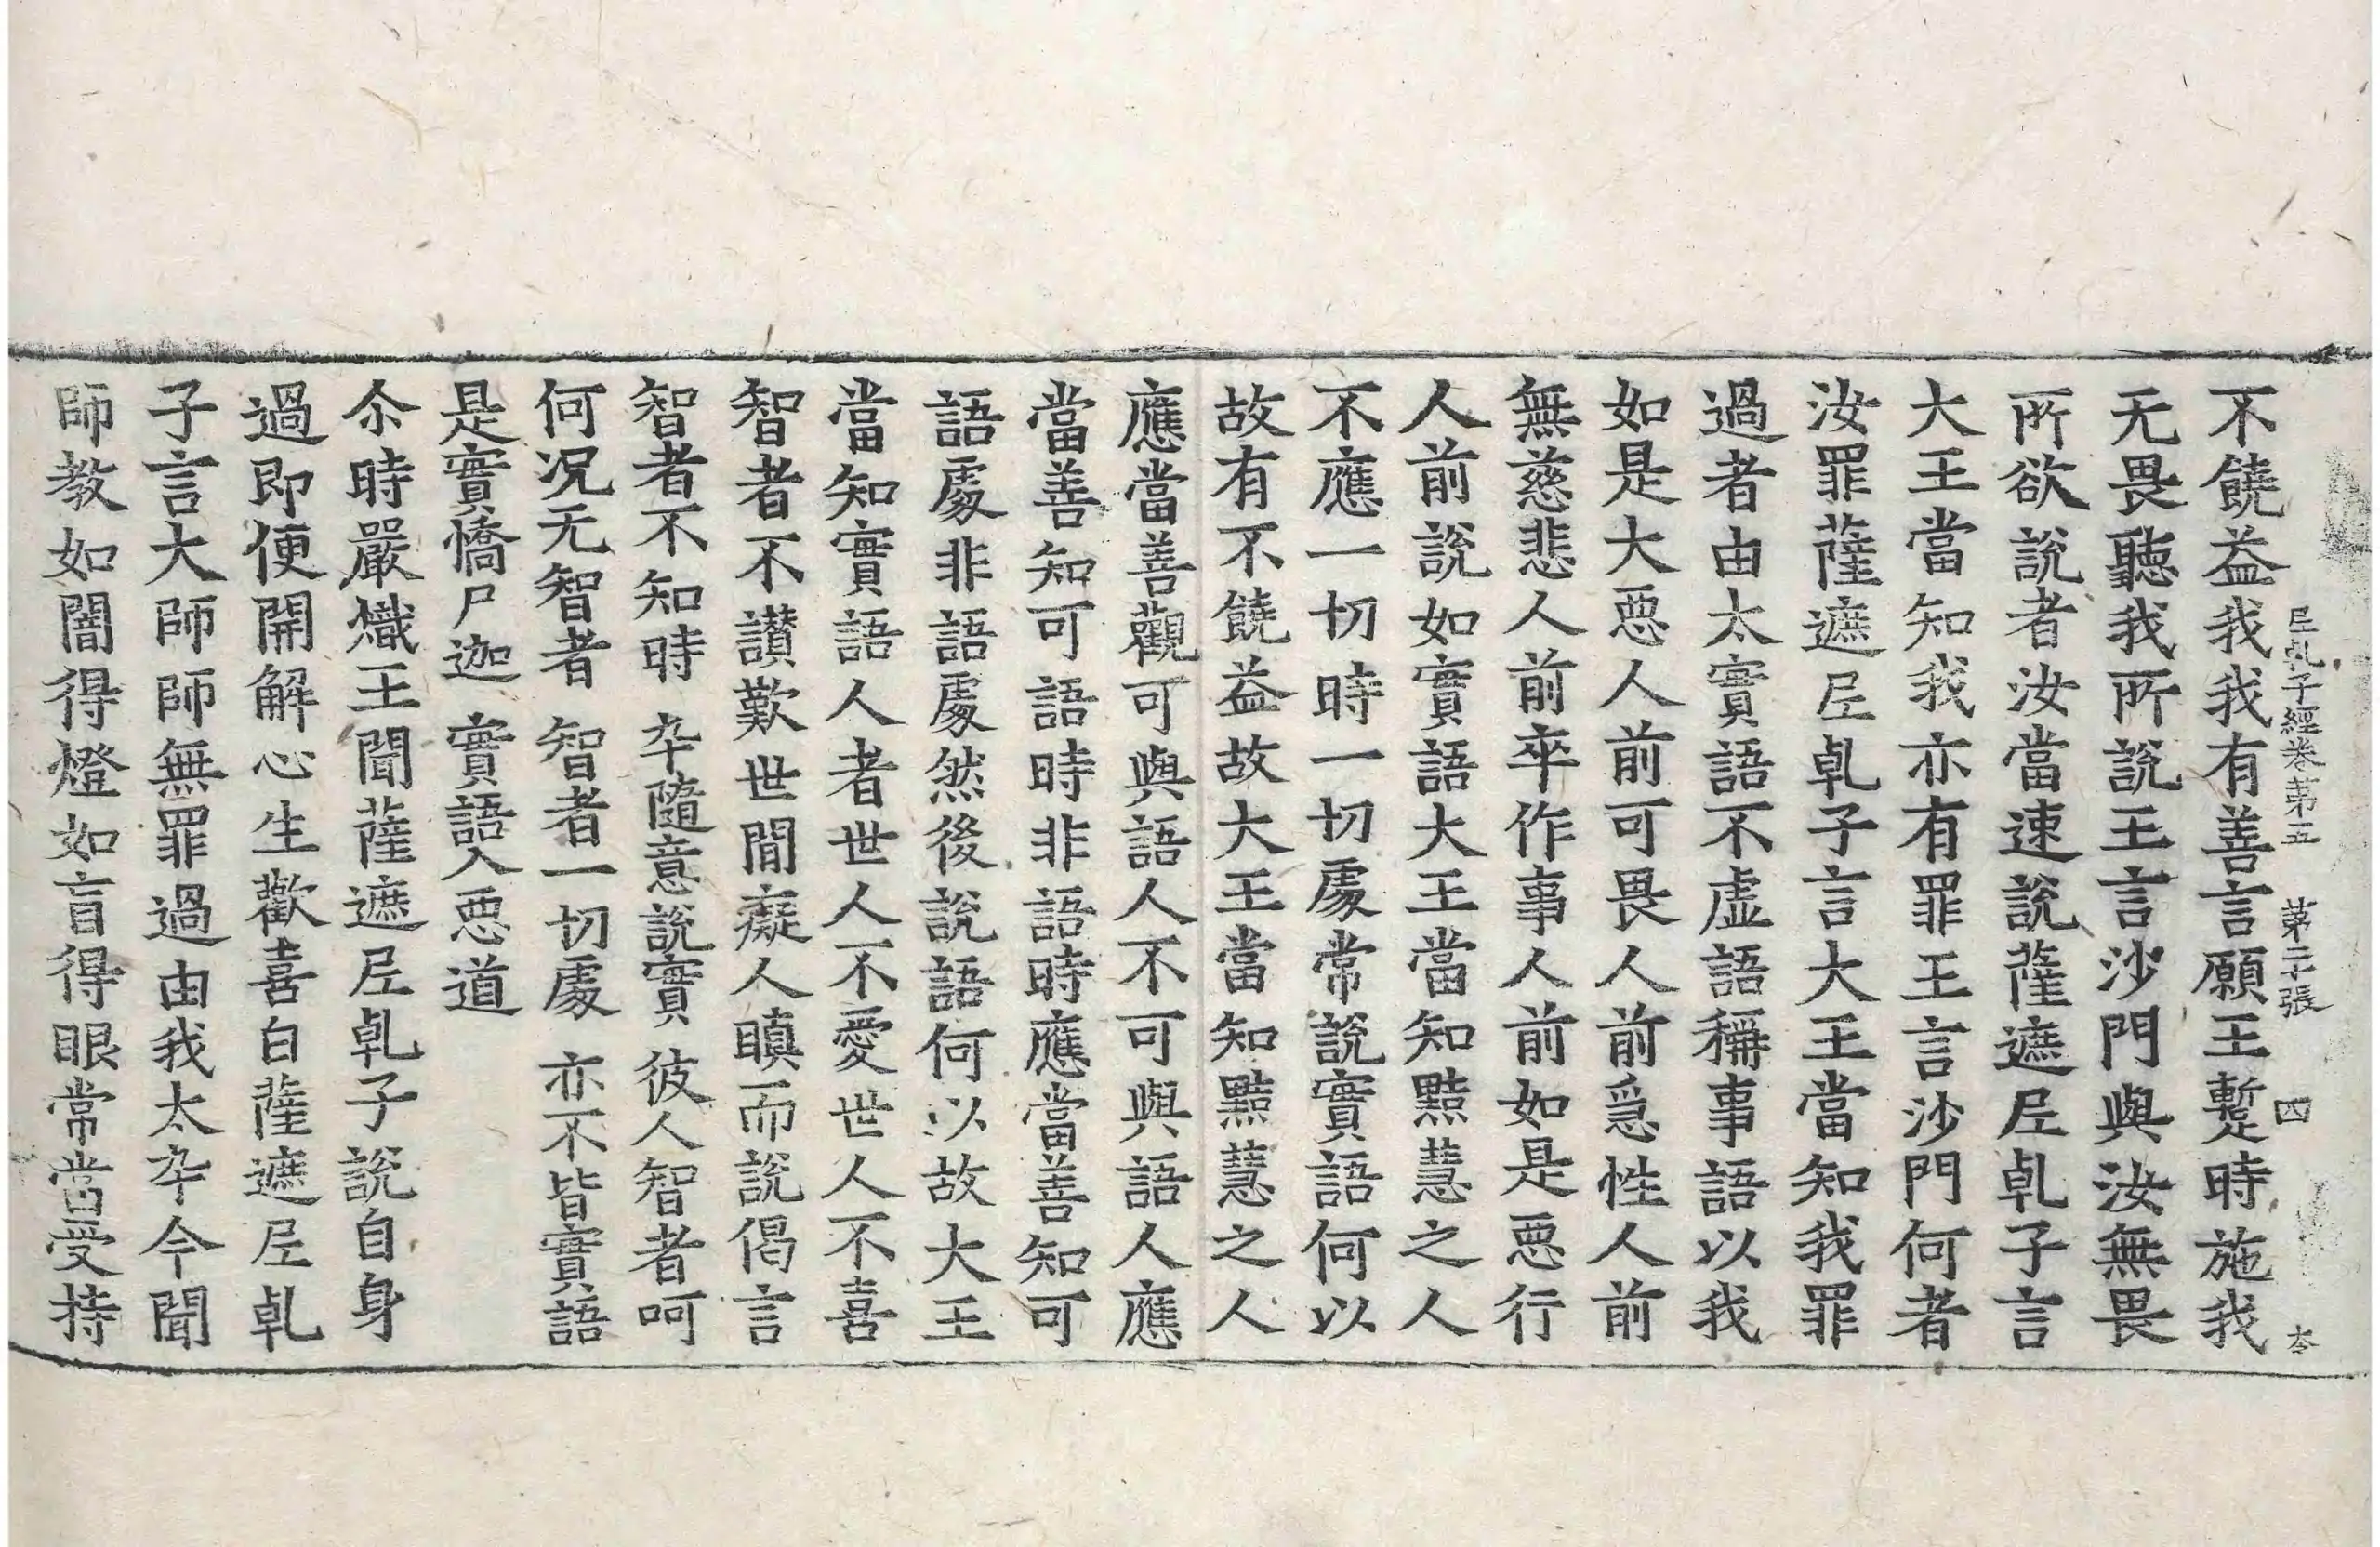 尼乹子經卷第五　第二十張　四　大夲
不饒益我我有善言願王蹔時施我
无畏聽我所說王言沙門與汝無畏
所欲說者汝當速說薩遮𡰱乹子言
大王當知我亦有罪王言沙門何者
汝罪薩遮𡰱乹子言大王當知我罪
過者由太實語不虛語稱事語以我
如是大悪人前可畏人前㤅性人前
無慈悲人前卒作事人前如是悪行
人前說如實語大王當知黠慧之人
不應一切時一切處常說實語何以
故有不饒益故大王當知黠慧之人
應當善觀可與語人不可與語人應
當善知可語時非語時應當善知可
語處非語處然後說語何以故大王
當知實語人者世人不愛世人不喜
智者不讃歎世閒癡人瞋而說偈言
智者不知時　卒隨意說實　彼人智者呵
何况无智者　智者一切處　亦不皆實語
是實憍尸迦　實語入悪道
尒時嚴熾王聞薩遮𡰱乹子說自身
過即便開解心生歡喜白薩遮𡰱乹
子言大師師無罪過由我太卒今聞
師教如闇得燈如盲得眼常當受持